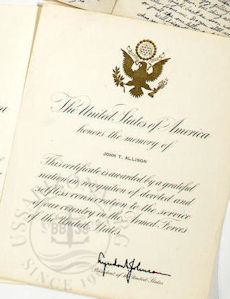 The United States of America
honors the memory of
JOHN T. ALLISON
This certificate is awarded by a grateful
nation in recognition of devoted and
selfless consecration to the service
of our country in the Armed Forces
of the United States.
Lyndon B. Johnson
President of the United States